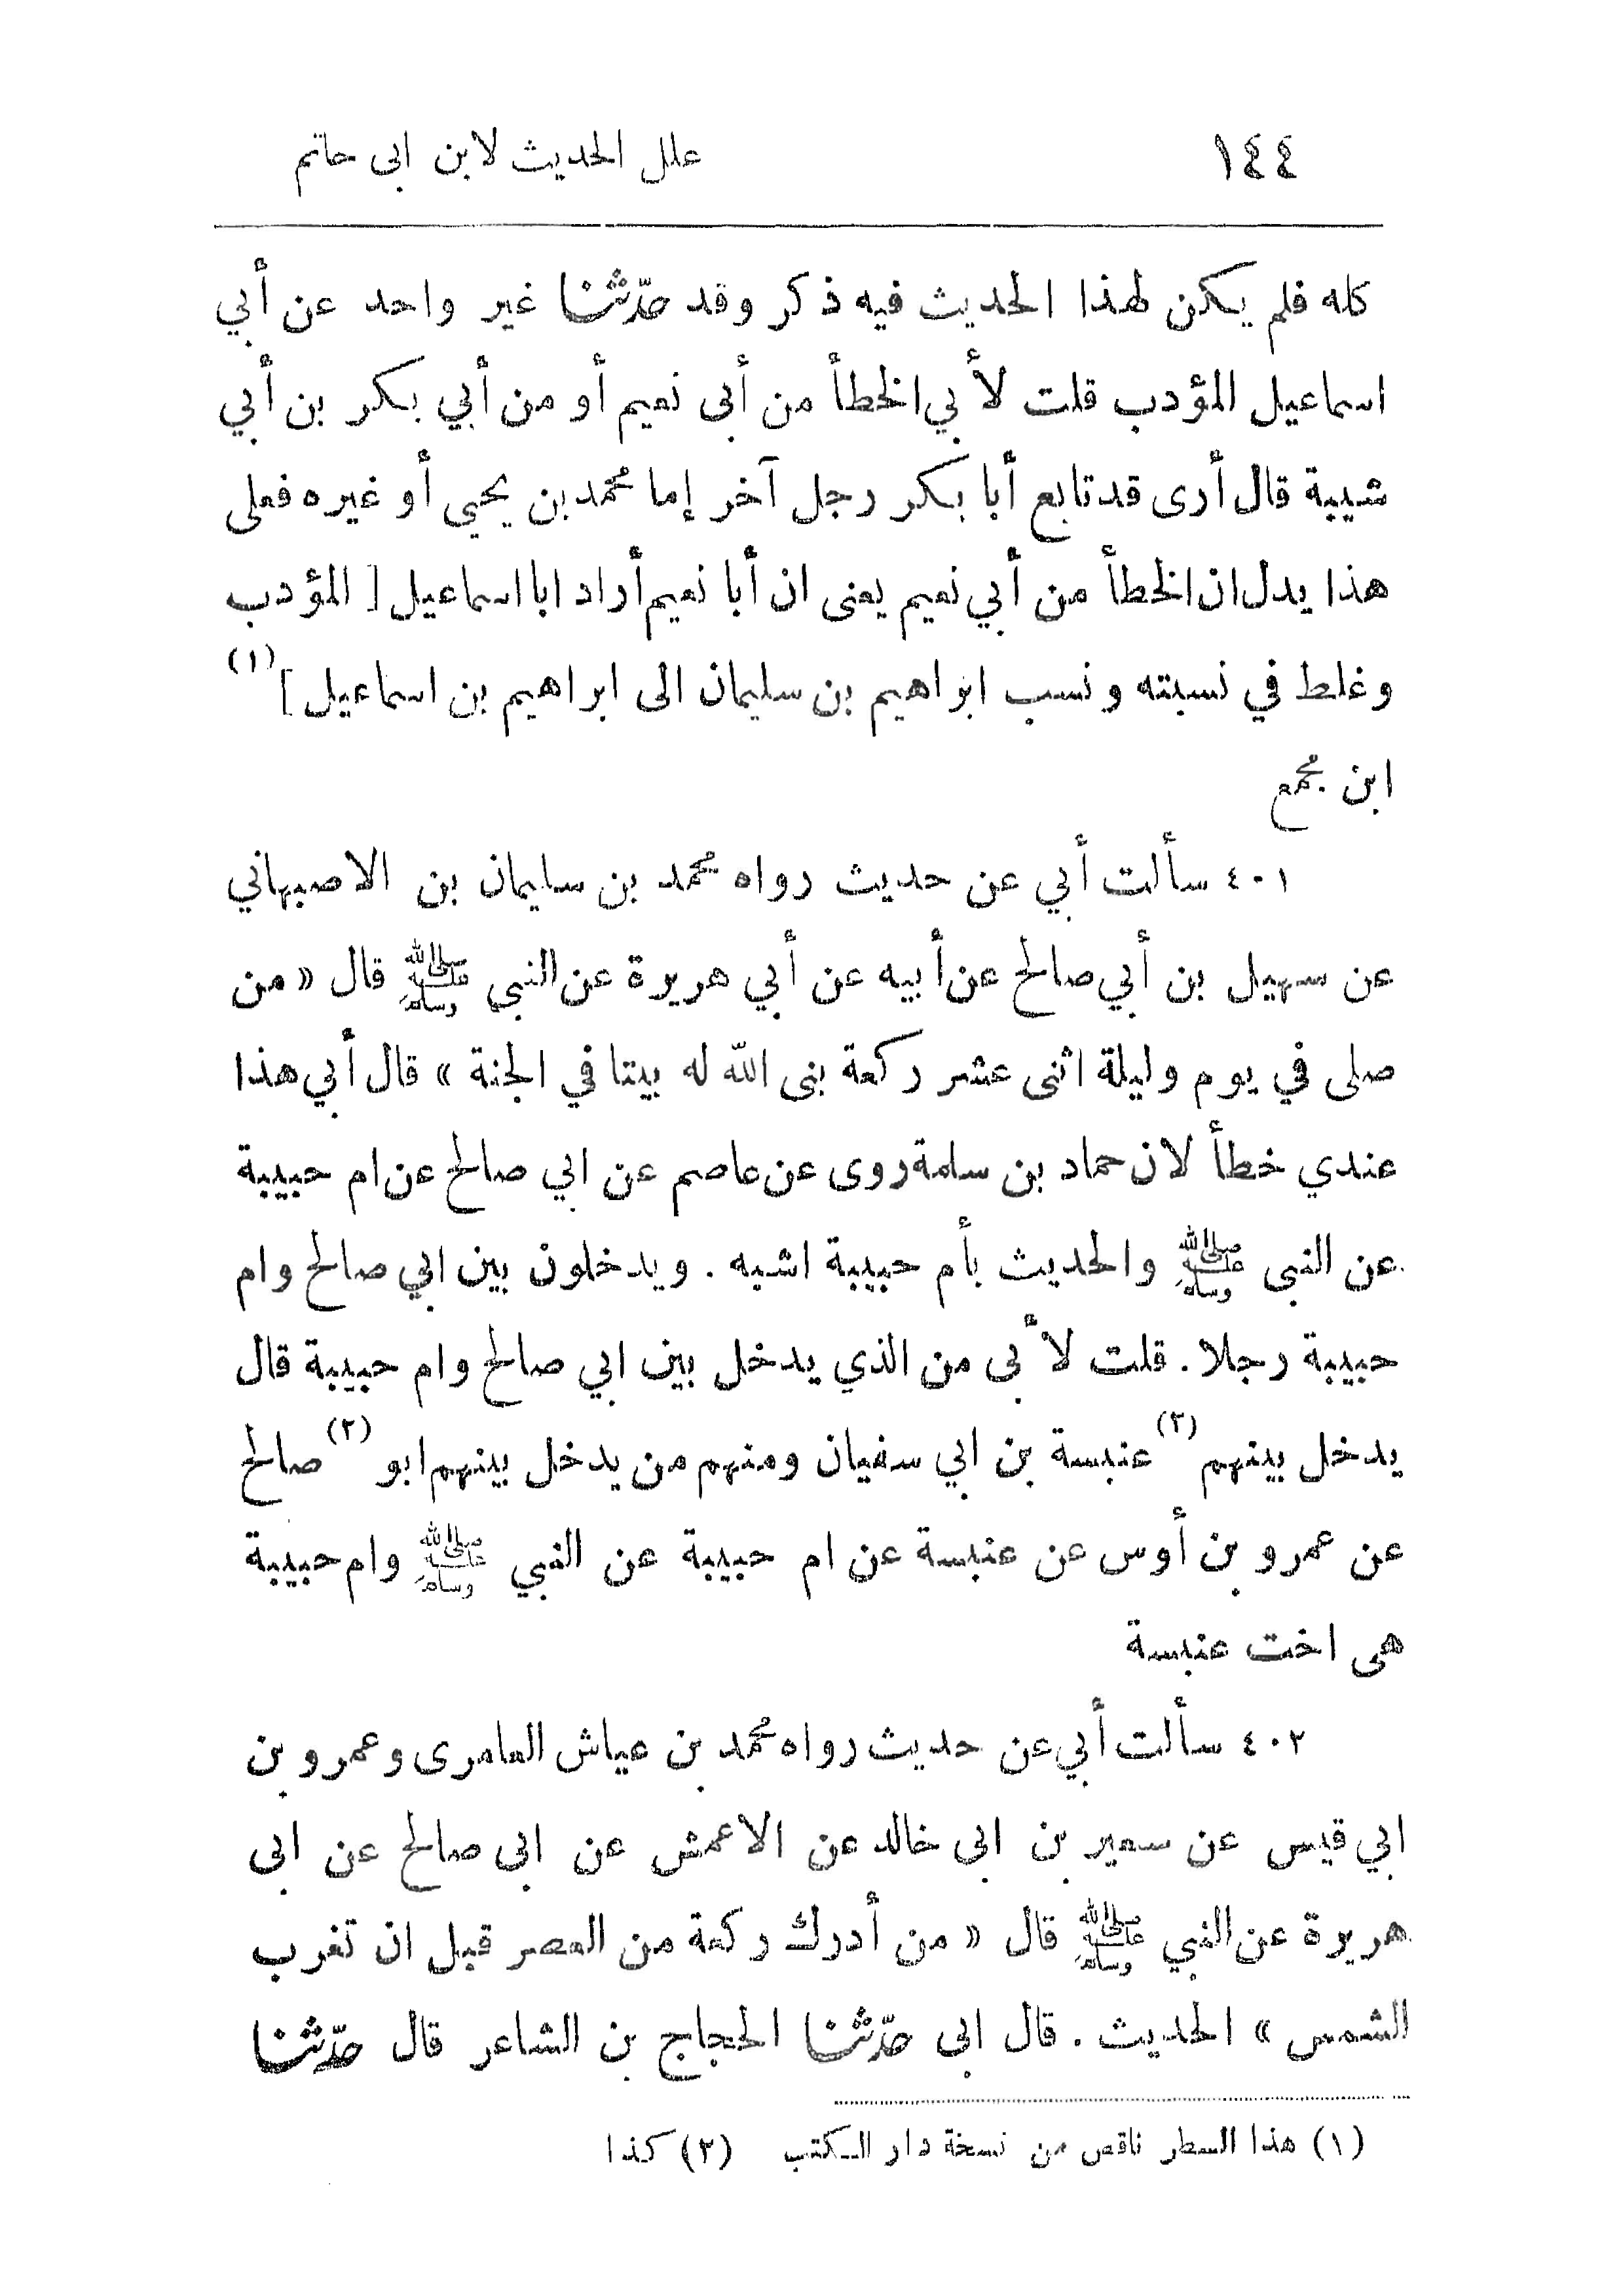 ١٤٤ علل الحديث لابن ابى حاتم
كله فلم يكن لهذا الحديث فيه ذكر وقد حدّثنا غير واحد عن أبي
اسماعيل المؤدب قلت لأبي الخطأ من أبى نعيم أو من أبي بكر بن أبي
شيبة قال أرى قد تابع أبا بكر رجل آخر إما محمد بن يحيى أو غيره فعلى
هذا يدل ان الخطأ من أبي نعيم يعنى ان أبا نعيم أراد ابا اسماعيل [ المؤدب
وغلط في نسبته ونسب ابراهيم بن سليمان الى ابراهيم بن اسماعيل ] (١)
ابن مجمع
٤٠١ سألت أبي عن حديث رواه محمد بن سليمان بن الاصبهاني
عن سهيل بن أبي صالح عن أبيه عن أبي هريرة عن النبى ﷺ قال « من
صلى في يوم وليلة اثنى عشر ركعة بنى الله له بيتا في الجنة » قال أبي هذا
عندي خطأ لان حماد بن سلمة روى عن عاصم عن ابي صالح عن ام حبيبة
عن النبى ﷺ والحديث بأم حبيبة اشبه . ويدخلون بين ابي صالح وام
حبيبة رجلا . قلت لأبى من الذي يدخل بين ابي صالح وام حبيبة قال
يدخل بينهم (٢) عنبسة بن ابي سفيان ومنهم من يدخل بينهم ابو (٢) صالح
عن عمرو بن أوس عن عنبسة عن ام حبيبة عن النبي ﷺ وام حبيبة
هى اخت عنبسة
٤٠٢ سألت أبي عن حديث رواه محمد بن عياش العامرى وعمرو بن
ابي قيس عن سعير بن ابى خالد عن الاعمش عن ابى صالح عن ابى
هريرة عن النبي ﷺ قال « من أدرك ركعة من العصر قبل ان تغرب
الشمس » الحديث . قال ابى حدّثنا الحجاج بن الشاعر قال حدّثنا
(١) هذا السطر ناقص من نسخة دار الكتب (٢) كذا